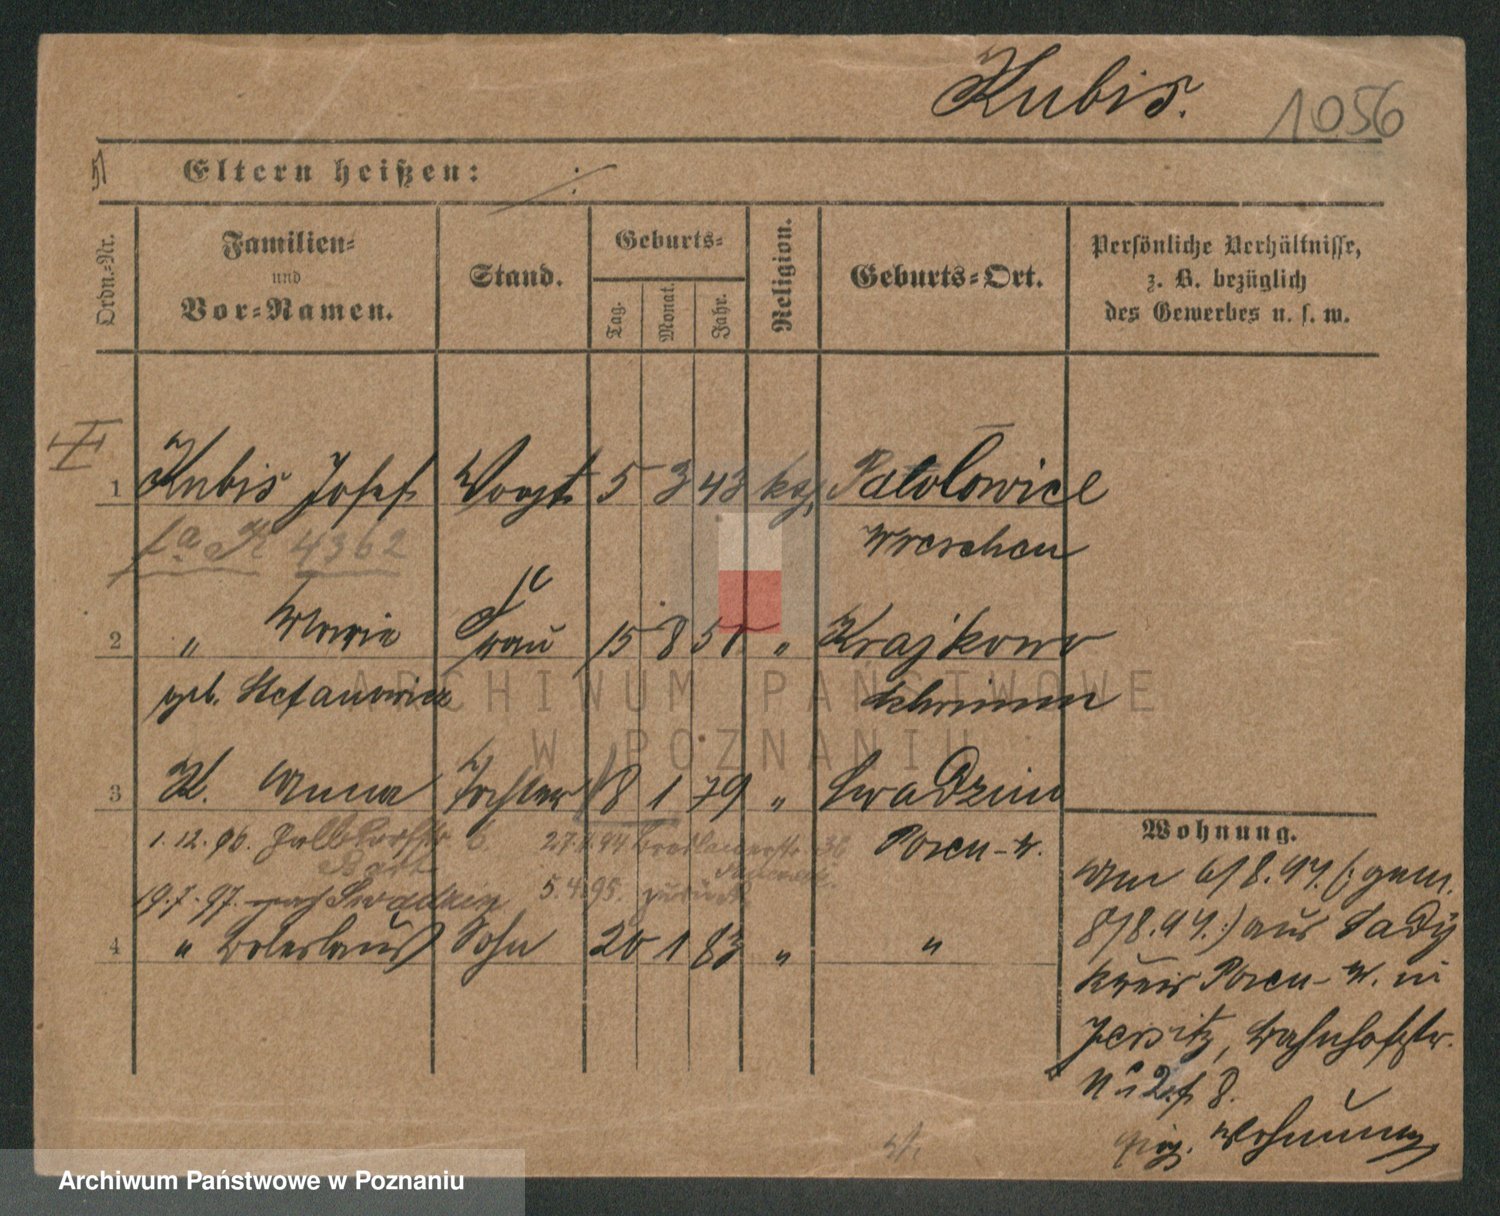 Kubis.
1056
Eltern heißen:
Ordn.-Nr.
Familien-
und
Vor-Namen.
Stand.
Geburts-
Tag.
Monat.
Jahr.
Religion.
Geburts-Ort.
Persönliche Verhältnisse,
z. B. bezüglich
des Gewerbes u. s. w.
1 Kubis Josef Voogt 5 3 43 Wreschen
4362
2 " Marie Frau 15 8 51 " Krajkowo
geb. Stefanowicz Schrimm
3 K. Anna Tochter 18 1 79 " Swadzim
1.12.96. 6. 27. 94 36 Posen-W.
19.7.97. nach Swadzim 5.4.95. zurück
4 " Boleslaus Sohn 20 1 83 " "
Wohnung.
Am 6/8.94. (: gem.
8/8.94. :) aus Sady
Kreis Posen-W. in
Jersitz, Bahnhofstr.
8.
Wohnung
ARCHIWUM PAŃSTWOWE
W POZNANIU
Archiwum Państwowe w Poznaniu